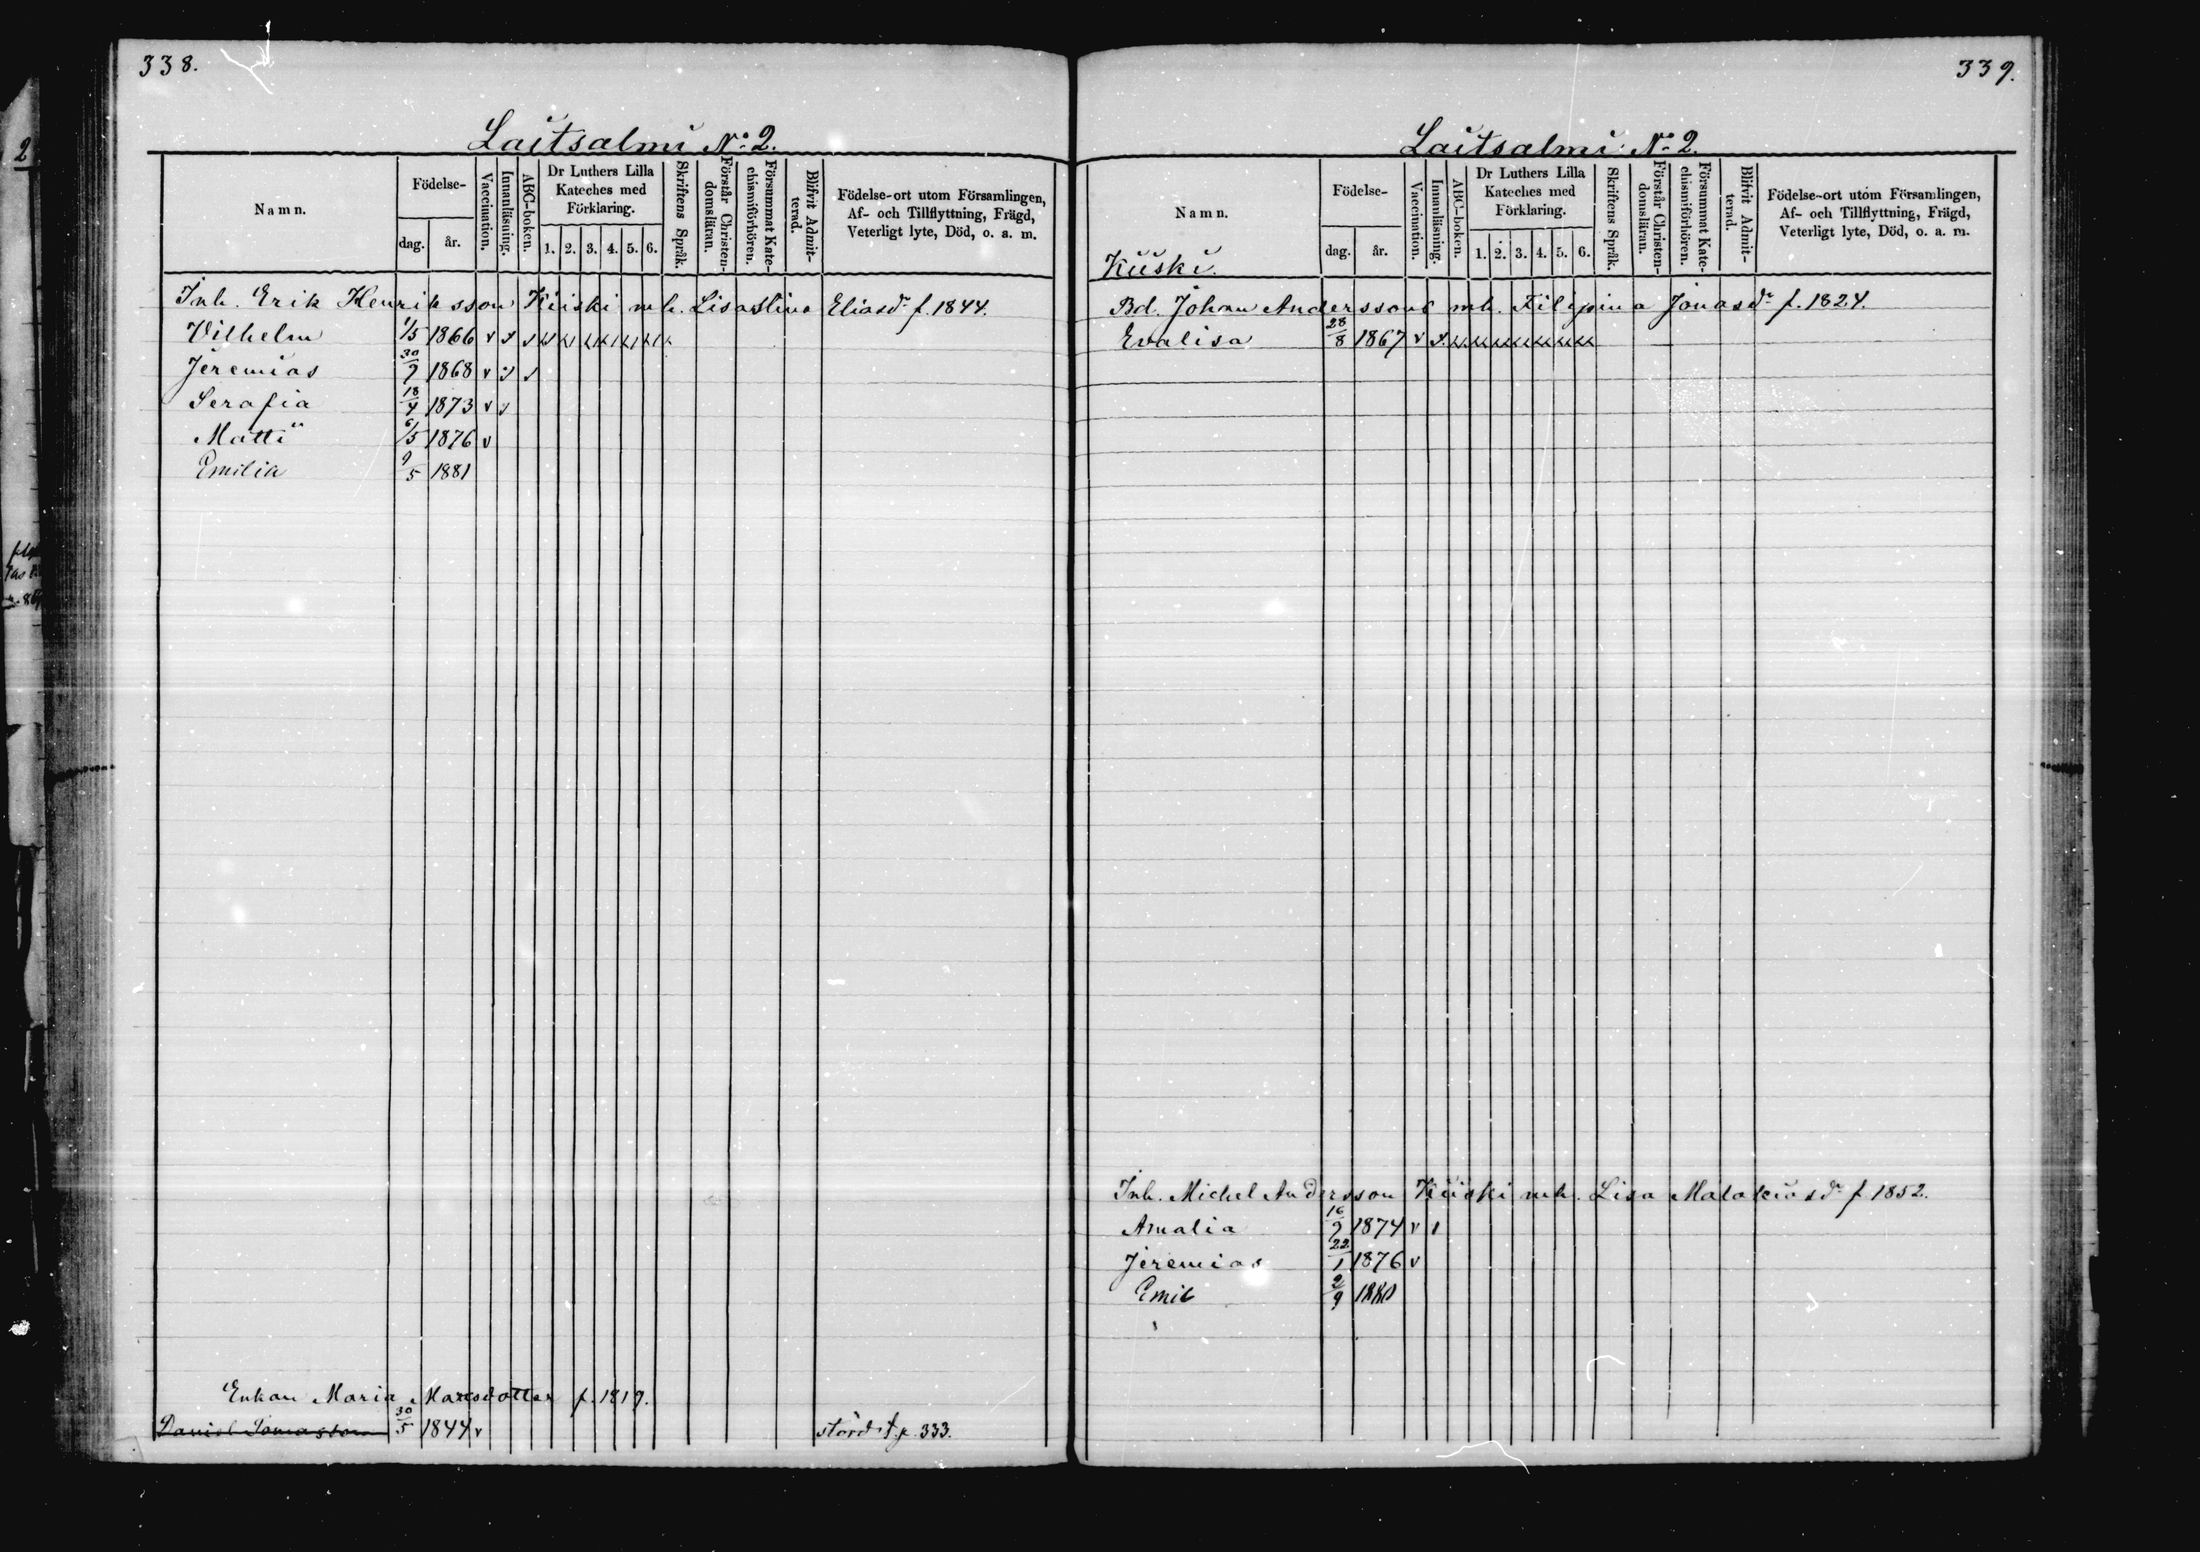 338.
Laitsalmi No 2.
Namn.
Födelse-
dag.
år.
Vaccination.
Innanläsning.
ABC-boken.
Dr Luthers Lilla
Kateches med
Förklaring.
1. 2. 3. 4. 5. 6.
Skriftens Språk.
Förstår Christen-
domsläran.
Försummat Kate-
chismiförhören.
Blifvit Admit-
terad.
Födelse-ort utom Församlingen,
Af- och Tillflyttning, Frägd,
Veterligt lyte, Död, o. a. m.
Inh. Erik Henriksson Kiiski m h. Lisastina Eliasdr f. 1844.
Vilhelm 1/5 1866 v
Jeremias 30/9 1868 v
Serafia 18/4 1873 v
Matti 6/5 1876 v
Emilia 9/5 1881
Enkan Maria Marcsdotter f. 1819.
Daniel Tomasson 30/5 1844 v p. 333.
339.
Laitsalmi No 2.
Namn.
Kiiski.
Födelse-
dag.
år.
Vaccination.
Innanläsning.
ABC-boken.
Dr Luthers Lilla
Kateches med
Förklaring.
1. 2. 3. 4. 5. 6.
Skriftens Språk.
Förstår Christen-
domsläran.
Försummat Kate-
chismiförhören.
Blifvit Admit-
terad.
Födelse-ort utom Församlingen,
Af- och Tillflyttning, Frägd,
Veterligt lyte, Död, o. a. m.
Bd. Johan Anderssons mh. Filippina Jonasdr f. 1824.
Evalisa 28/8 1867 v
Inh. Michel Andersson Kiiski mh. Lisa Malakiasdr f. 1852.
Amalia 16/9 1874 v
Jeremias 22/1 1876 v
Emil 2/9 1880